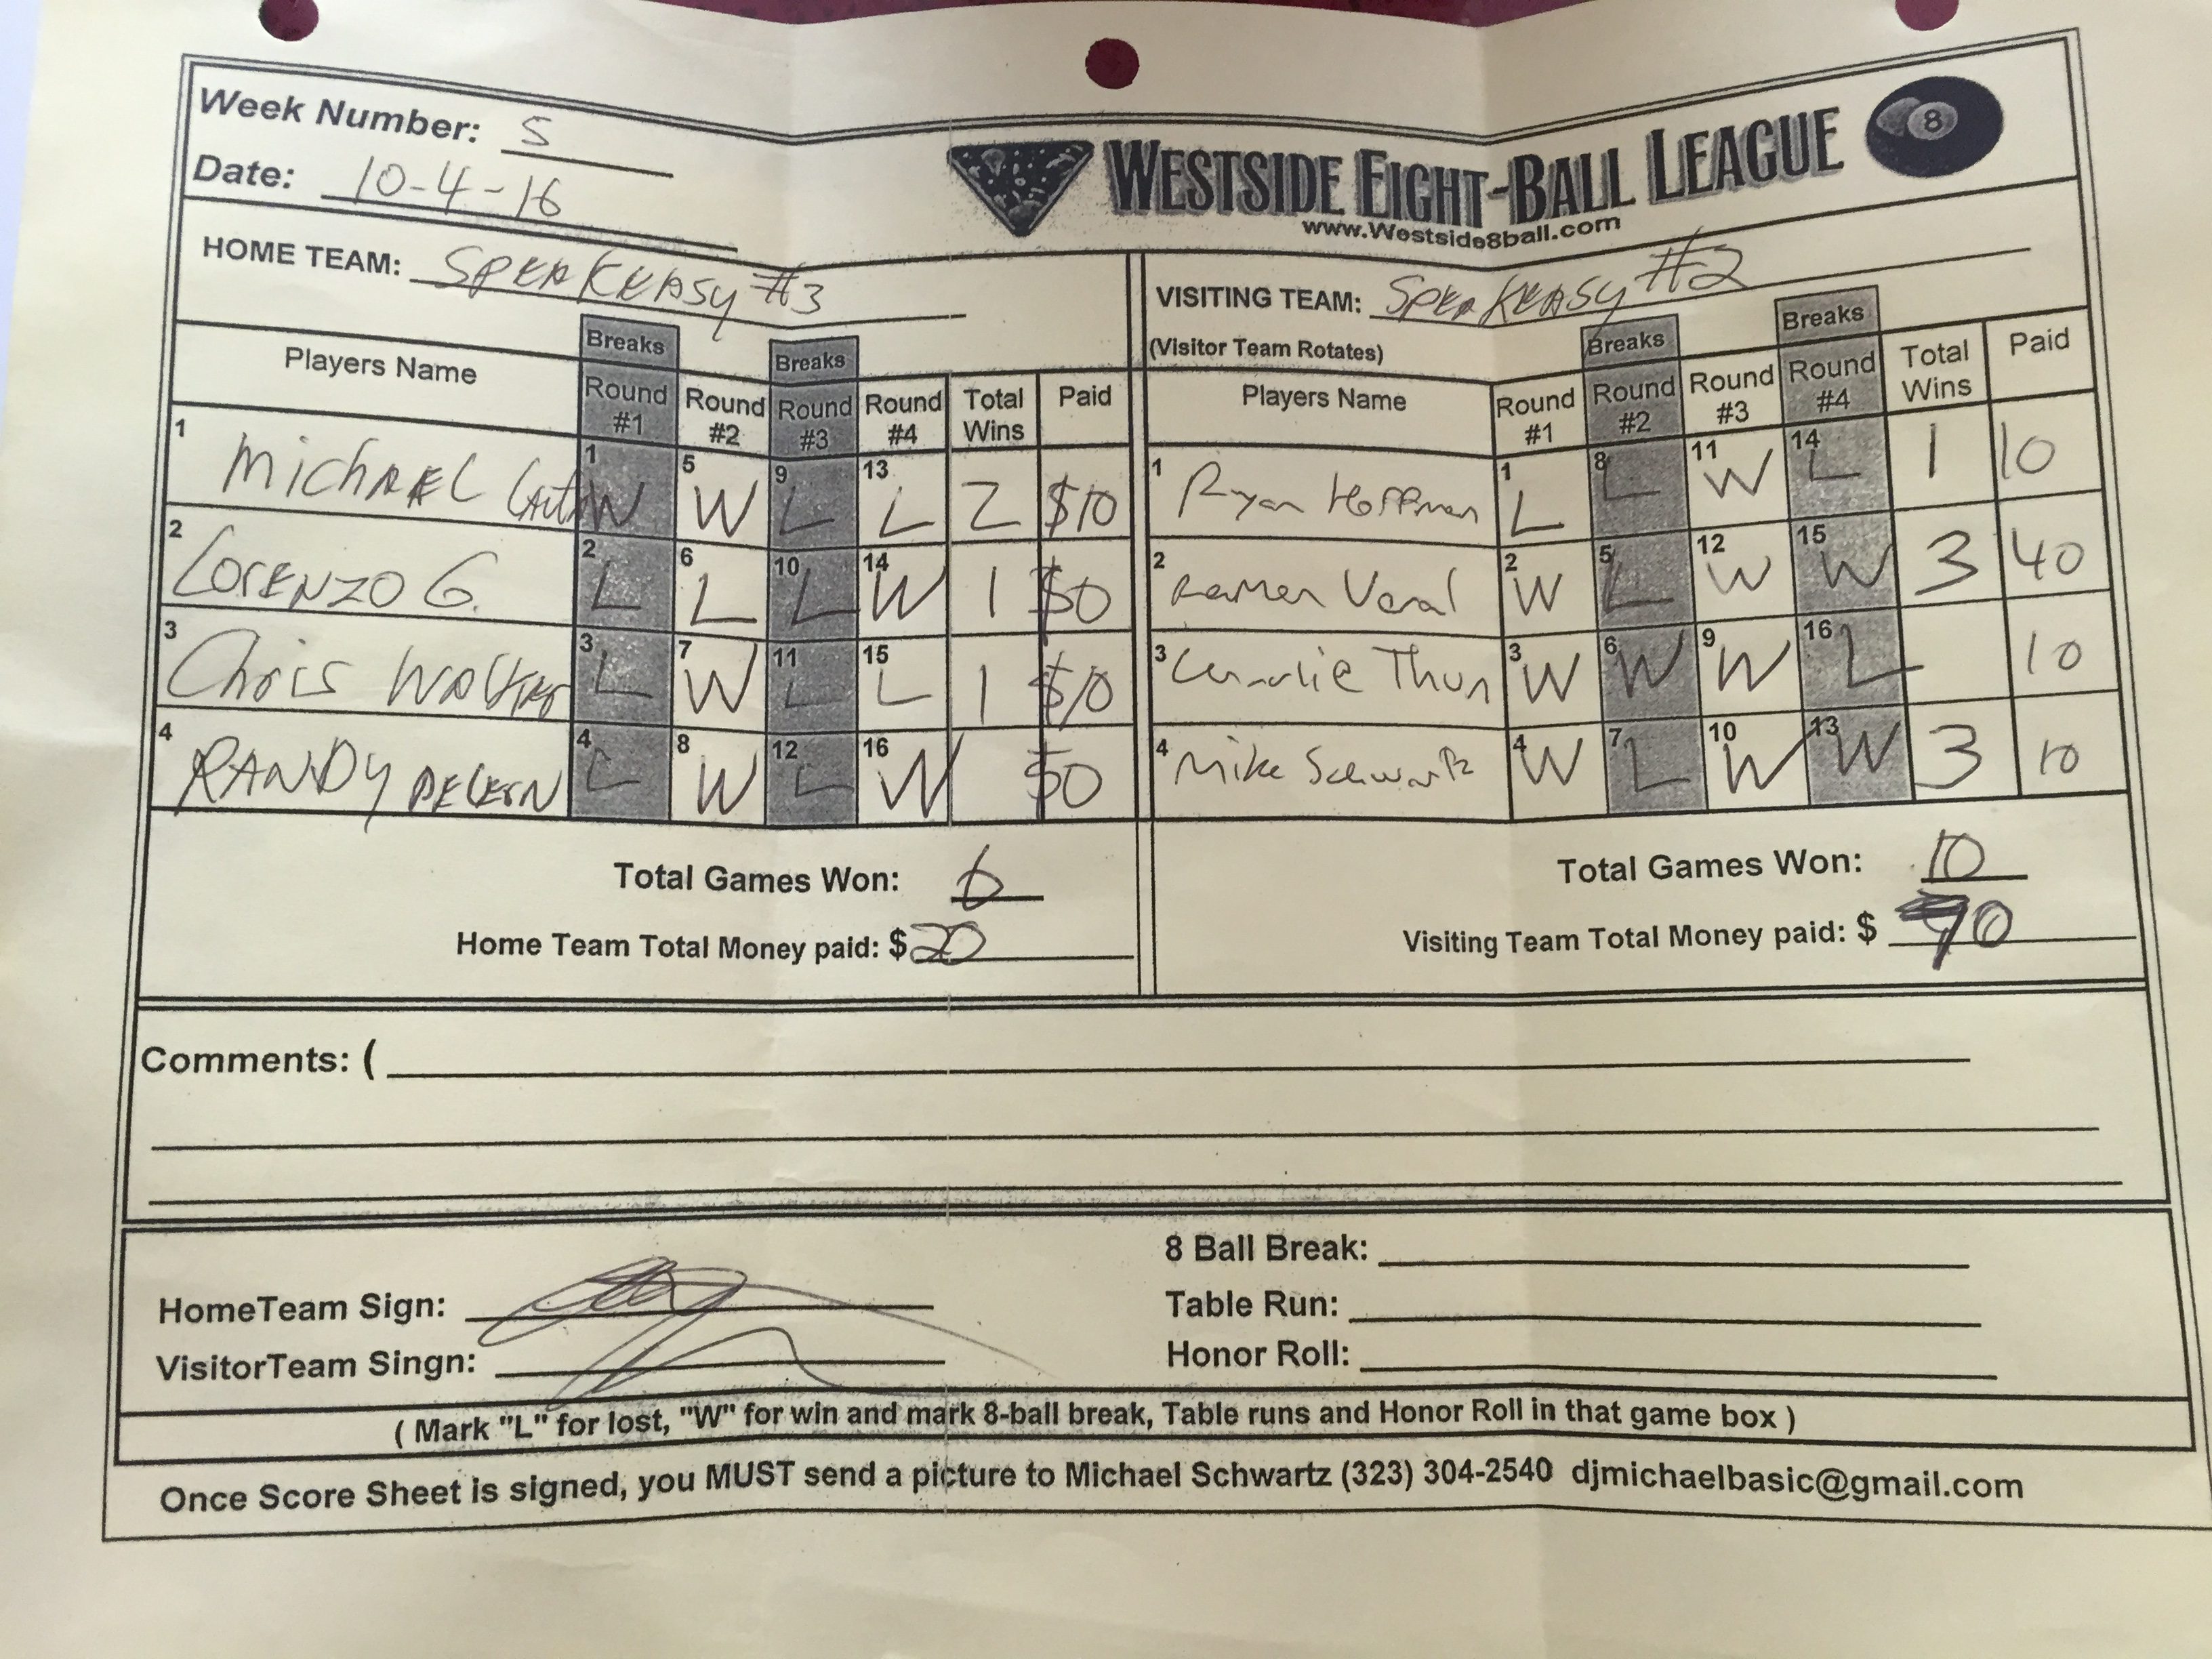 Week Number: 5
Date: 10-4-16
WESTSIDE EIGHT-BALL LEAGUE 8
www.Westside8ball.com
HOME TEAM: SPEAKEASY #3
VISITING TEAM: SPEAKEASY #2
(Visitor Team Rotates)
Players Name Breaks Round #1 Round #2 Breaks Round #3 Round #4 Total Wins Paid
1 MichAEL 1 W 5 W 9 L 13 L 2 $10
2 LORENZO G. 2 L 6 L 10 L 14 W 1 $0
3 Chris WALKER 3 L 7 W 11 L 15 L 1 $10
4 RANDY 4 L 8 W 12 L 16 W $0
Total Games Won: 6
Home Team Total Money paid: $20
Players Name Round #1 Breaks Round #2 Round #3 Breaks Round #4 Total Wins Paid
1 Ryan Hoffman 1 L 8 L 11 W 14 L 1 10
2 2 W 5 L 12 W 15 W 3 40
3 Charlie Thun 3 W 6 W 9 W 16 L 10
4 Mike Schwartz 4 W 7 L 10 W 13 W 3 10
Total Games Won: 10
Visiting Team Total Money paid: $ 70
Comments: (
HomeTeam Sign:
VisitorTeam Singn:
8 Ball Break:
Table Run:
Honor Roll:
( Mark "L" for lost, "W" for win and mark 8-ball break, Table runs and Honor Roll in that game box )
Once Score Sheet is signed, you MUST send a picture to Michael Schwartz (323) 304-2540 djmichaelbasic@gmail.com